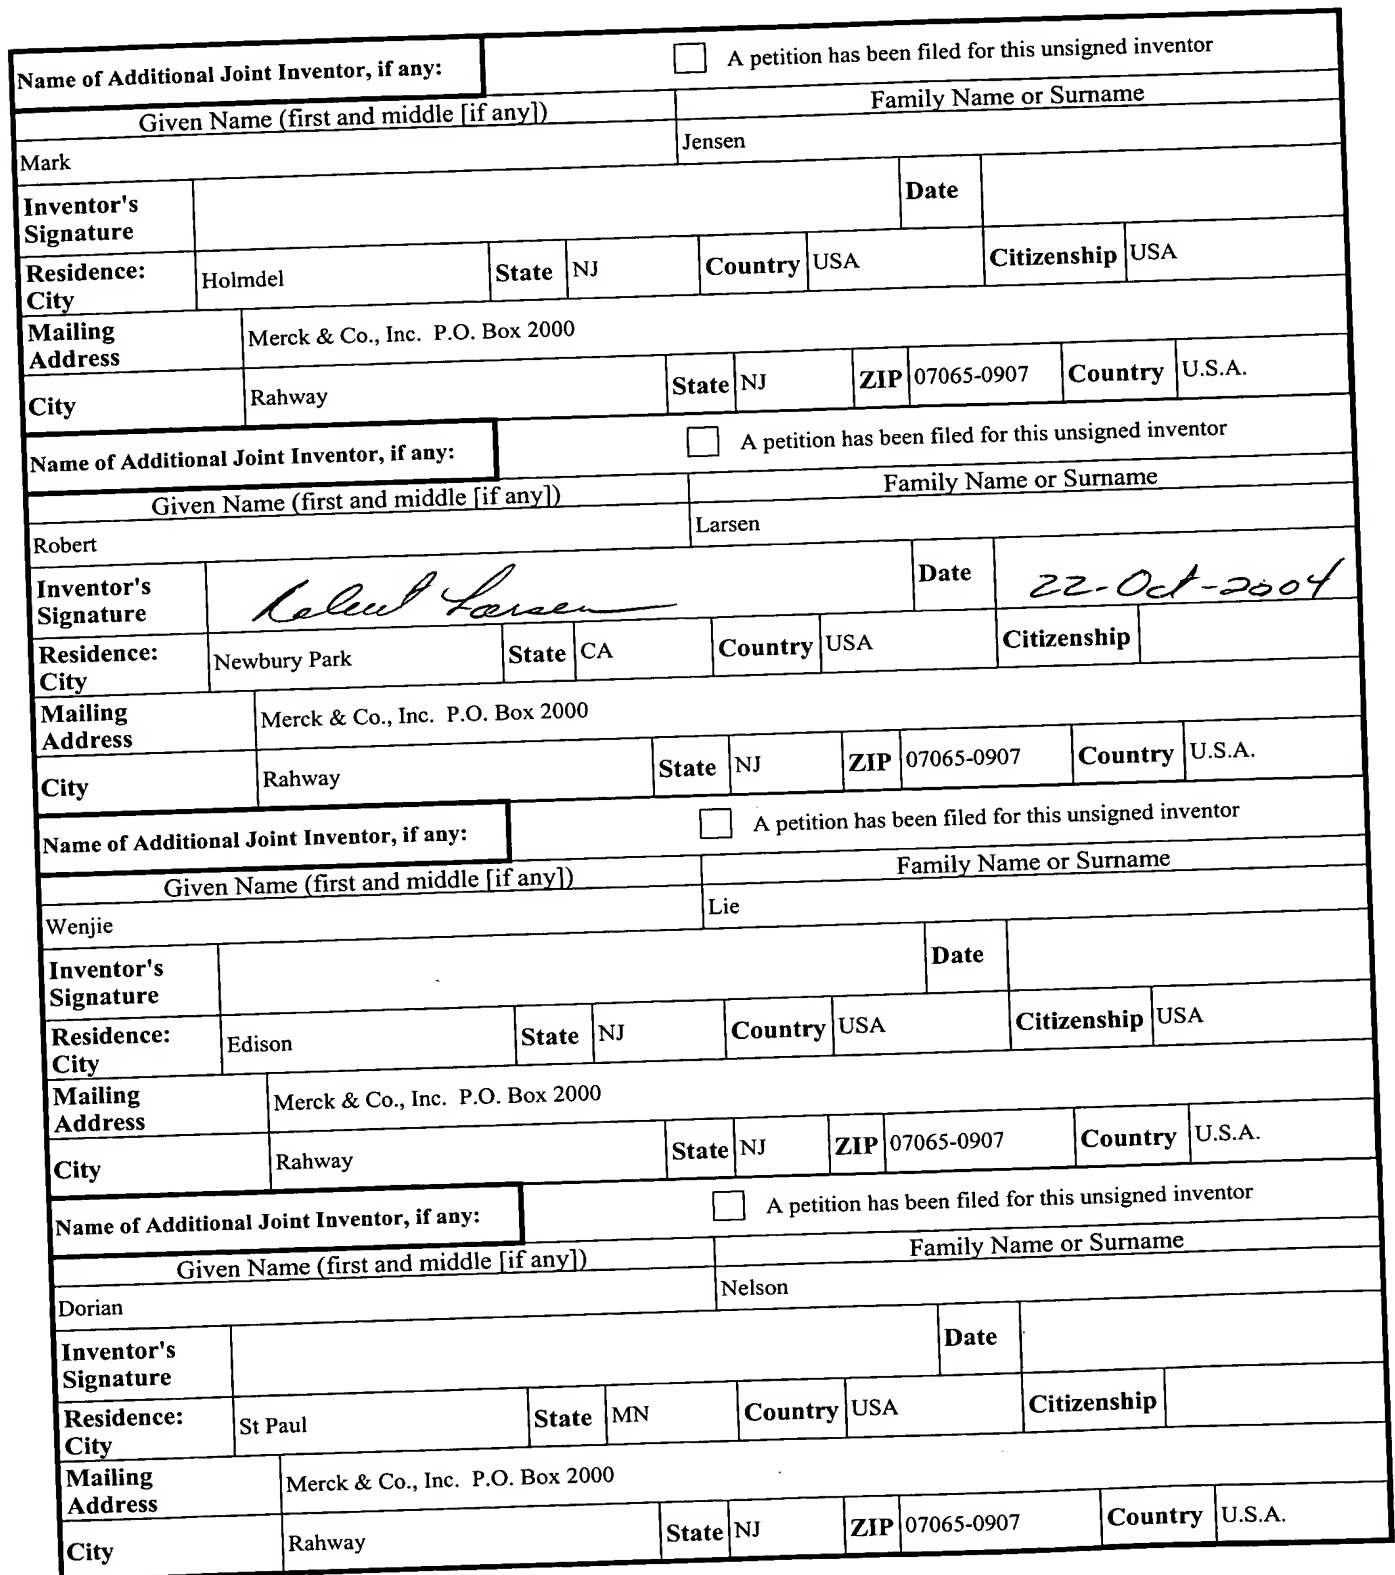 Name of Additional Joint Inventor, if any: A petition has been filed for this unsigned inventor
Given Name (first and middle [if any]) Family Name or Surname
Mark Jensen
Inventor's Signature Date
Residence: City Holmdel State NJ Country USA Citizenship USA
Mailing Address Merck & Co., Inc. P.O. Box 2000
City Rahway State NJ ZIP 07065-0907 Country U.S.A.
Name of Additional Joint Inventor, if any: A petition has been filed for this unsigned inventor
Given Name (first and middle [if any]) Family Name or Surname
Robert Larsen
Inventor's Signature Robert Larsen Date 22-Oct-2004
Residence: City Newbury Park State CA Country USA Citizenship
Mailing Address Merck & Co., Inc. P.O. Box 2000
City Rahway State NJ ZIP 07065-0907 Country U.S.A.
Name of Additional Joint Inventor, if any: A petition has been filed for this unsigned inventor
Given Name (first and middle [if any]) Family Name or Surname
Wenjie Lie
Inventor's Signature Date
Residence: City Edison State NJ Country USA Citizenship USA
Mailing Address Merck & Co., Inc. P.O. Box 2000
City Rahway State NJ ZIP 07065-0907 Country U.S.A.
Name of Additional Joint Inventor, if any: A petition has been filed for this unsigned inventor
Given Name (first and middle [if any]) Family Name or Surname
Dorian Nelson
Inventor's Signature Date
Residence: City St Paul State MN Country USA Citizenship
Mailing Address Merck & Co., Inc. P.O. Box 2000
City Rahway State NJ ZIP 07065-0907 Country U.S.A.